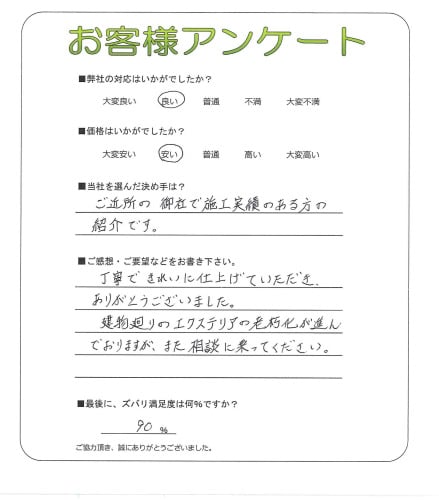 お客様アンケート
■弊社の対応はいかがでしたか?
大変良い 良い 普通 不満 大変不満
■価格はいかがでしたか?
大変安い 安い 普通 高い 大変高い
■当社を選んだ決め手は?
ご近所の 御社で施工実績のある方の
紹介です。
■ご感想・ご要望などをお書き下さい。
丁寧できれいに仕上げていただき、
ありがとうございました。
建物廻りのエクステリアの老朽化が進ん
でおりますが、また相談に乗ってください。
■最後に、ズバリ満足度は何%ですか?
90 %
ご協力頂き、誠にありがとうございました。